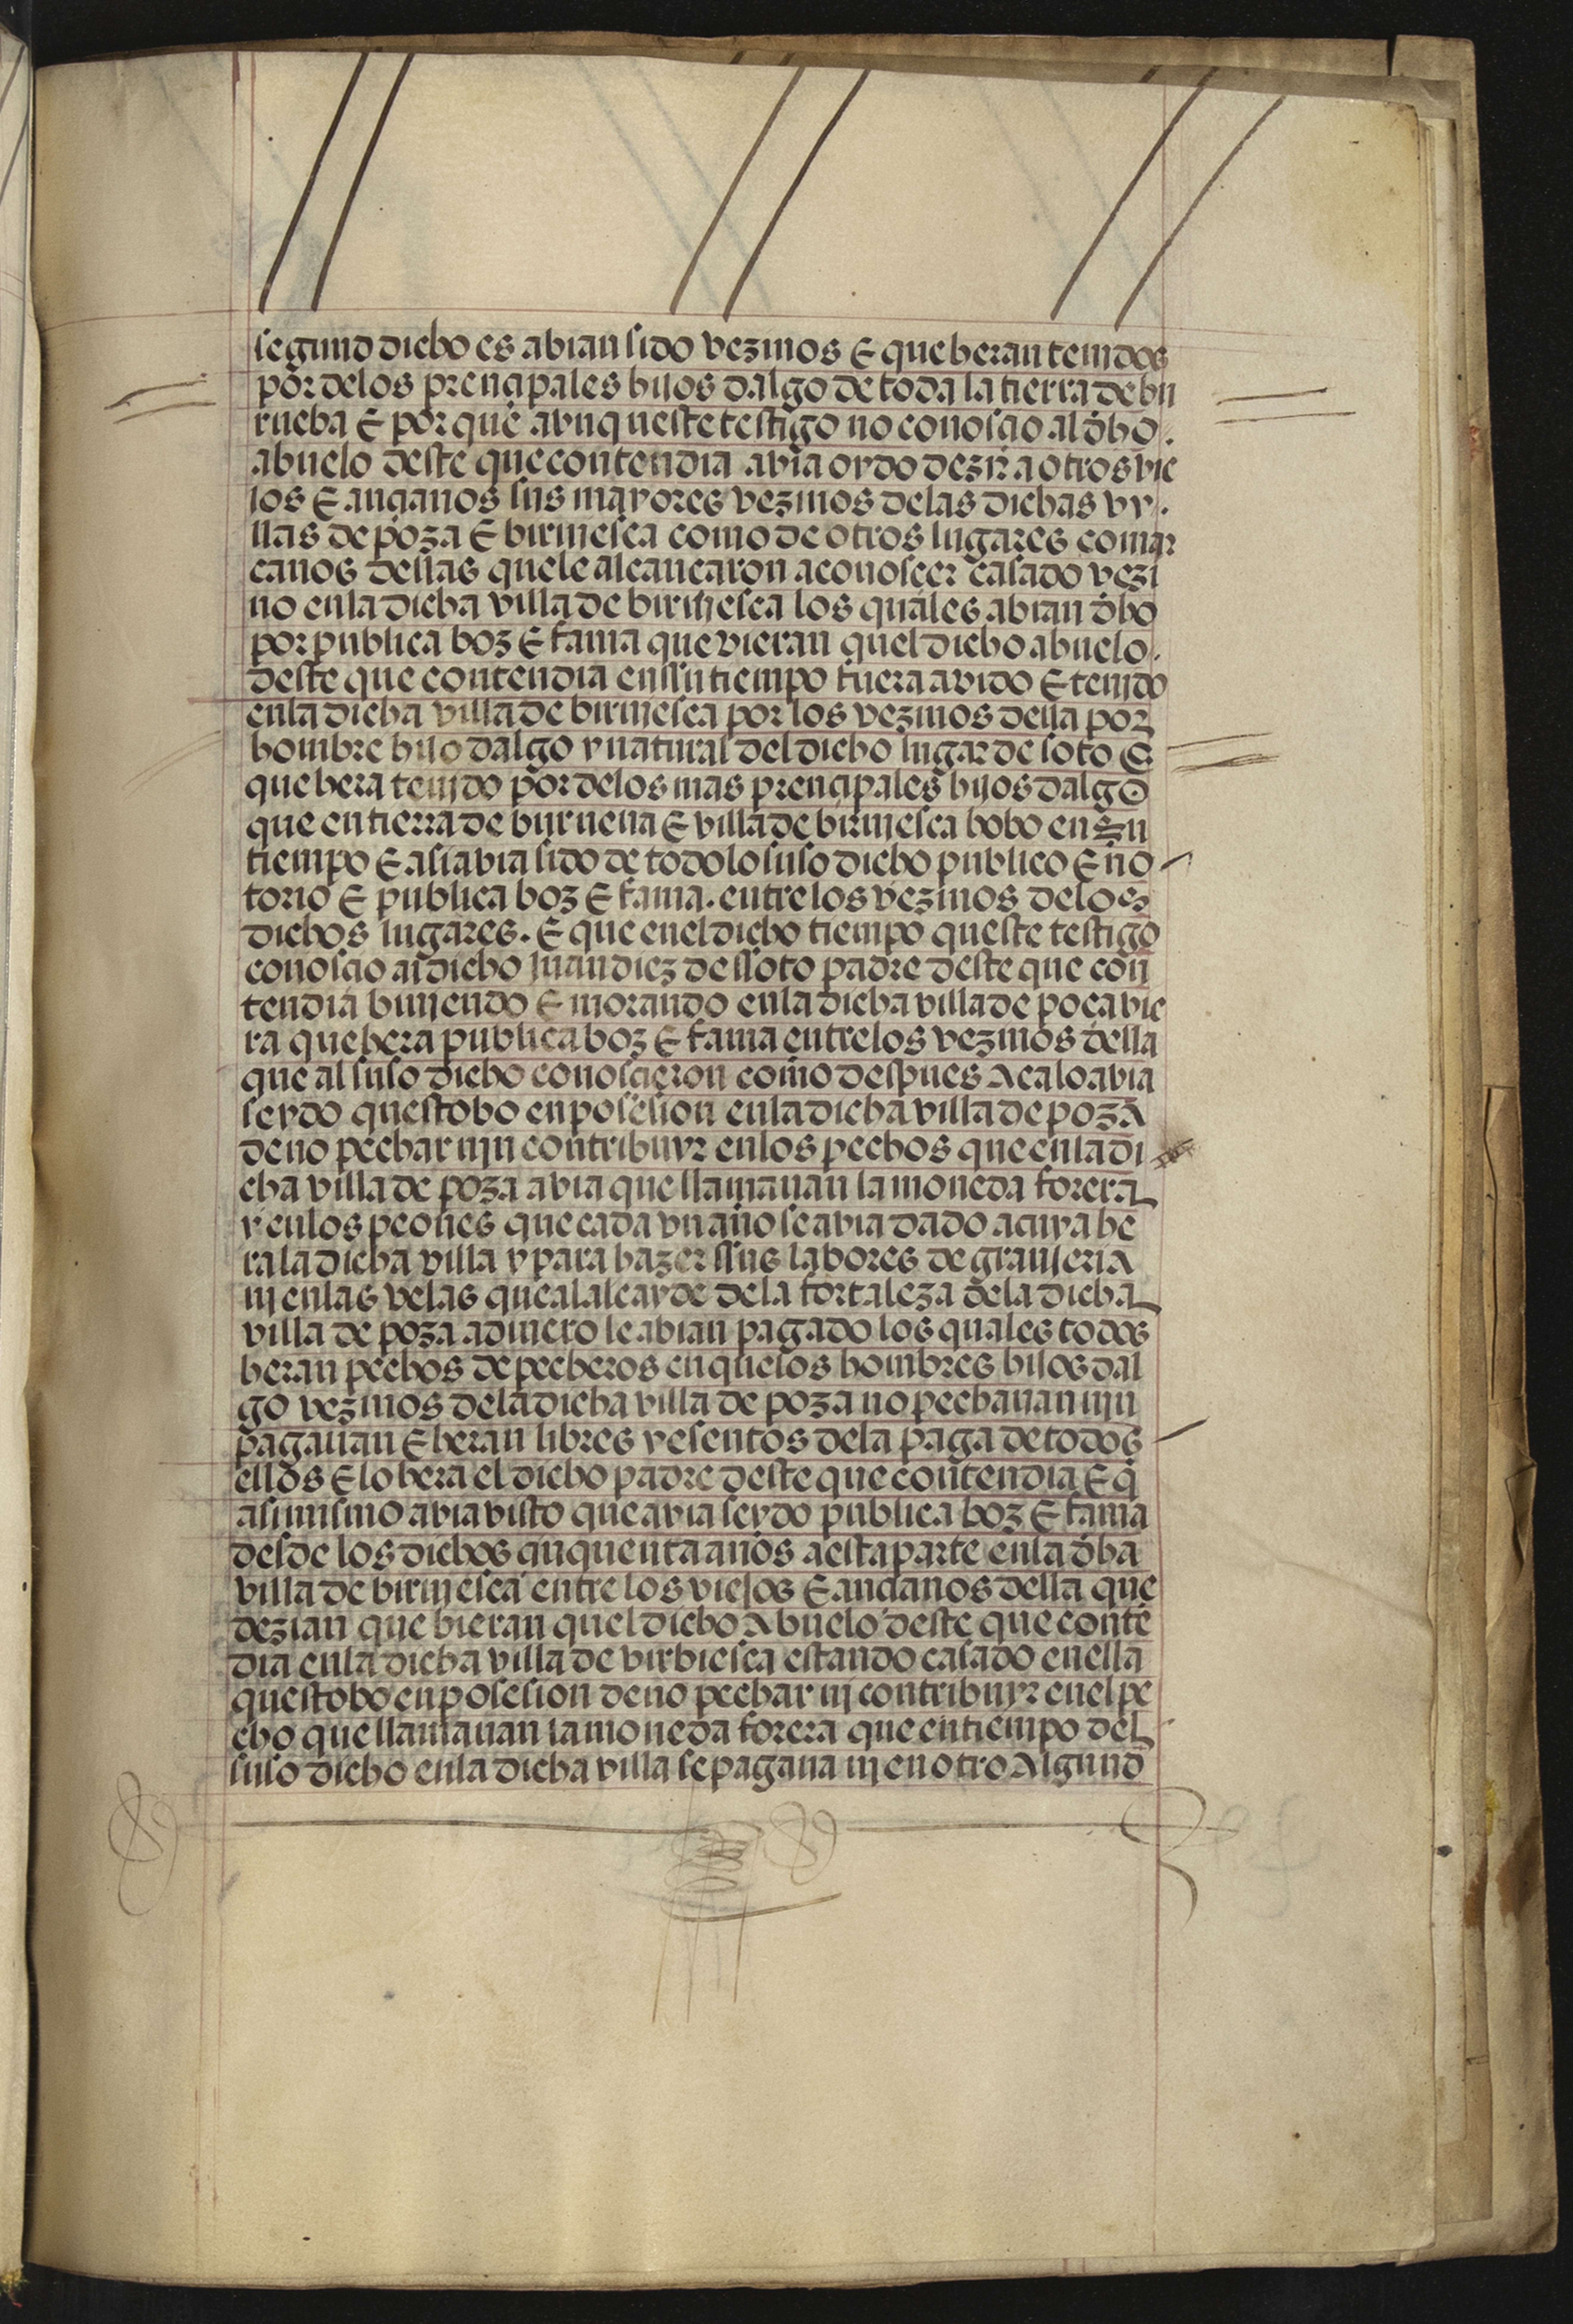 segund dicho es abian sido vezinos E que heran tenidos
por delos prencipales hijos dalgo de toda la tierra de bu
rueba E por que avnqueste testigo no conoscio al dho.
abuelo deste que contendia avia oydo dezir a otros vie
jos E ancianos sus mayores vezinos delas dichas vy.
llas de poza E birviesca como de otros lugares comar
canos dellas quele alcancaron aconoscer casado vezi
no enla dicha villa de birviesca los quales abian dho
por publica boz E fama que vieran quel dicho abuelo.
deste que contendia enssu tiempo fuera avido E tenido
enla dicha villa de birviesca por los vezinos della por
hombre hijo dalgo y natural del dicho lugar de soto E
que hera tenido por delos mas prencipales hijos dalgo
que en tierra de burueua E villa de birviesca hobo en su
tiempo E asi avia sido de todo lo suso dicho publico E no
torio E publica boz E fama. entre los vezinos delos
dichos lugares. E que enel dicho tiempo queste testigo
conoscio al dicho juan diez de ssoto padre deste que con
tendia biuiendo E morando enla dicha villa de poca vie
ra que hera publica boz E fama entrelos vezinos della
que al suso dicho conoscieron como despues Aca lo avia
seydo questobo en posesion enla dicha villa de poza
de no pechar nin contribuyr enlos pechos que enla di
cha villa de poza avia que llamauan la moneda forera
y enlos peones que cada vn año se avia dado a cuya he
ra la dicha villa y para hazer ssus labores de granjeria
ni enlas velas que al alcayde dela fortaleza dela dicha
villa de poza a dinero le abian pagado los quales todos
heran pechos de pecheros en quelos hombres hijos dal
go vezinos dela dicha villa de poza no pechauan nin
pagauan E heran libres y esentos dela paga de todos
ellos E lo hera el dicho padre deste que contendia E q̄
asimismo avia visto que avia seydo publica boz E fama
desde los dichos cinquenta años a esta parte enla dha
villa de birviesca entre los viejos E ancianos della que
dezian que bieran quel dicho Abuelo deste que conte
dia enla dicha villa de virbiesca estando casado enella
questobo en posesion de no pechar ni contribuyr enel pe
cho que llamauan la moneda forera que en tiempo del
suso dicho enla dicha villa se pagaua ni en otro Algund